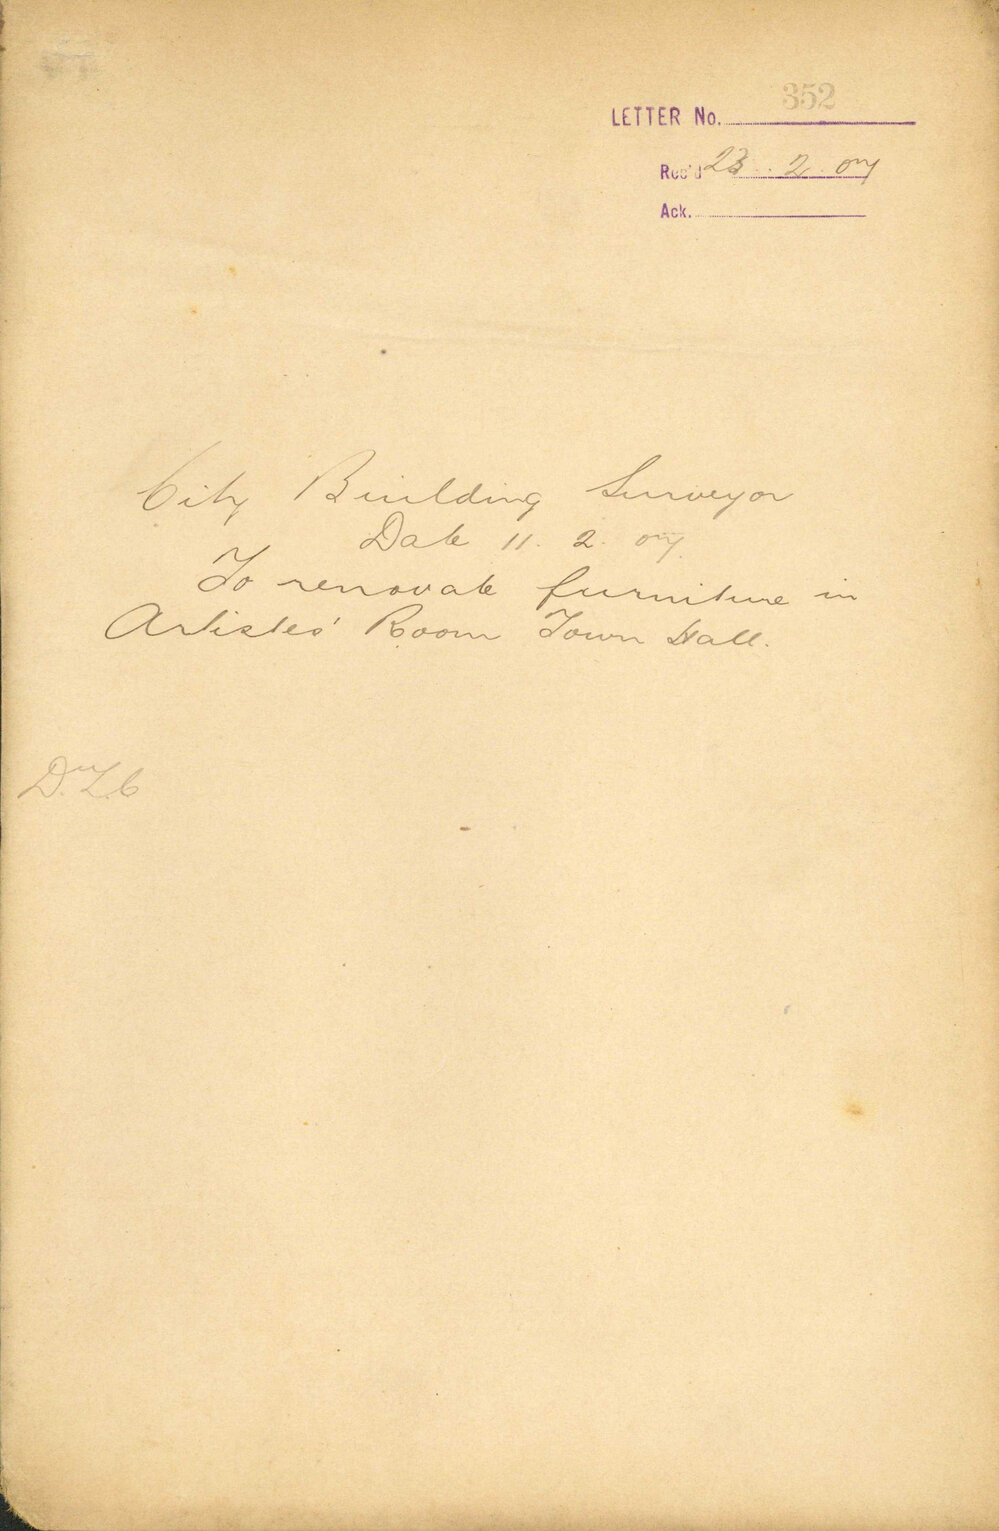 LETTER No. 352
Rec'd 23. 2 07
Ack.
City Building Surveyor
Date 11. 2. 07.
To renovate furniture in
Artistes' Room Town Hall.